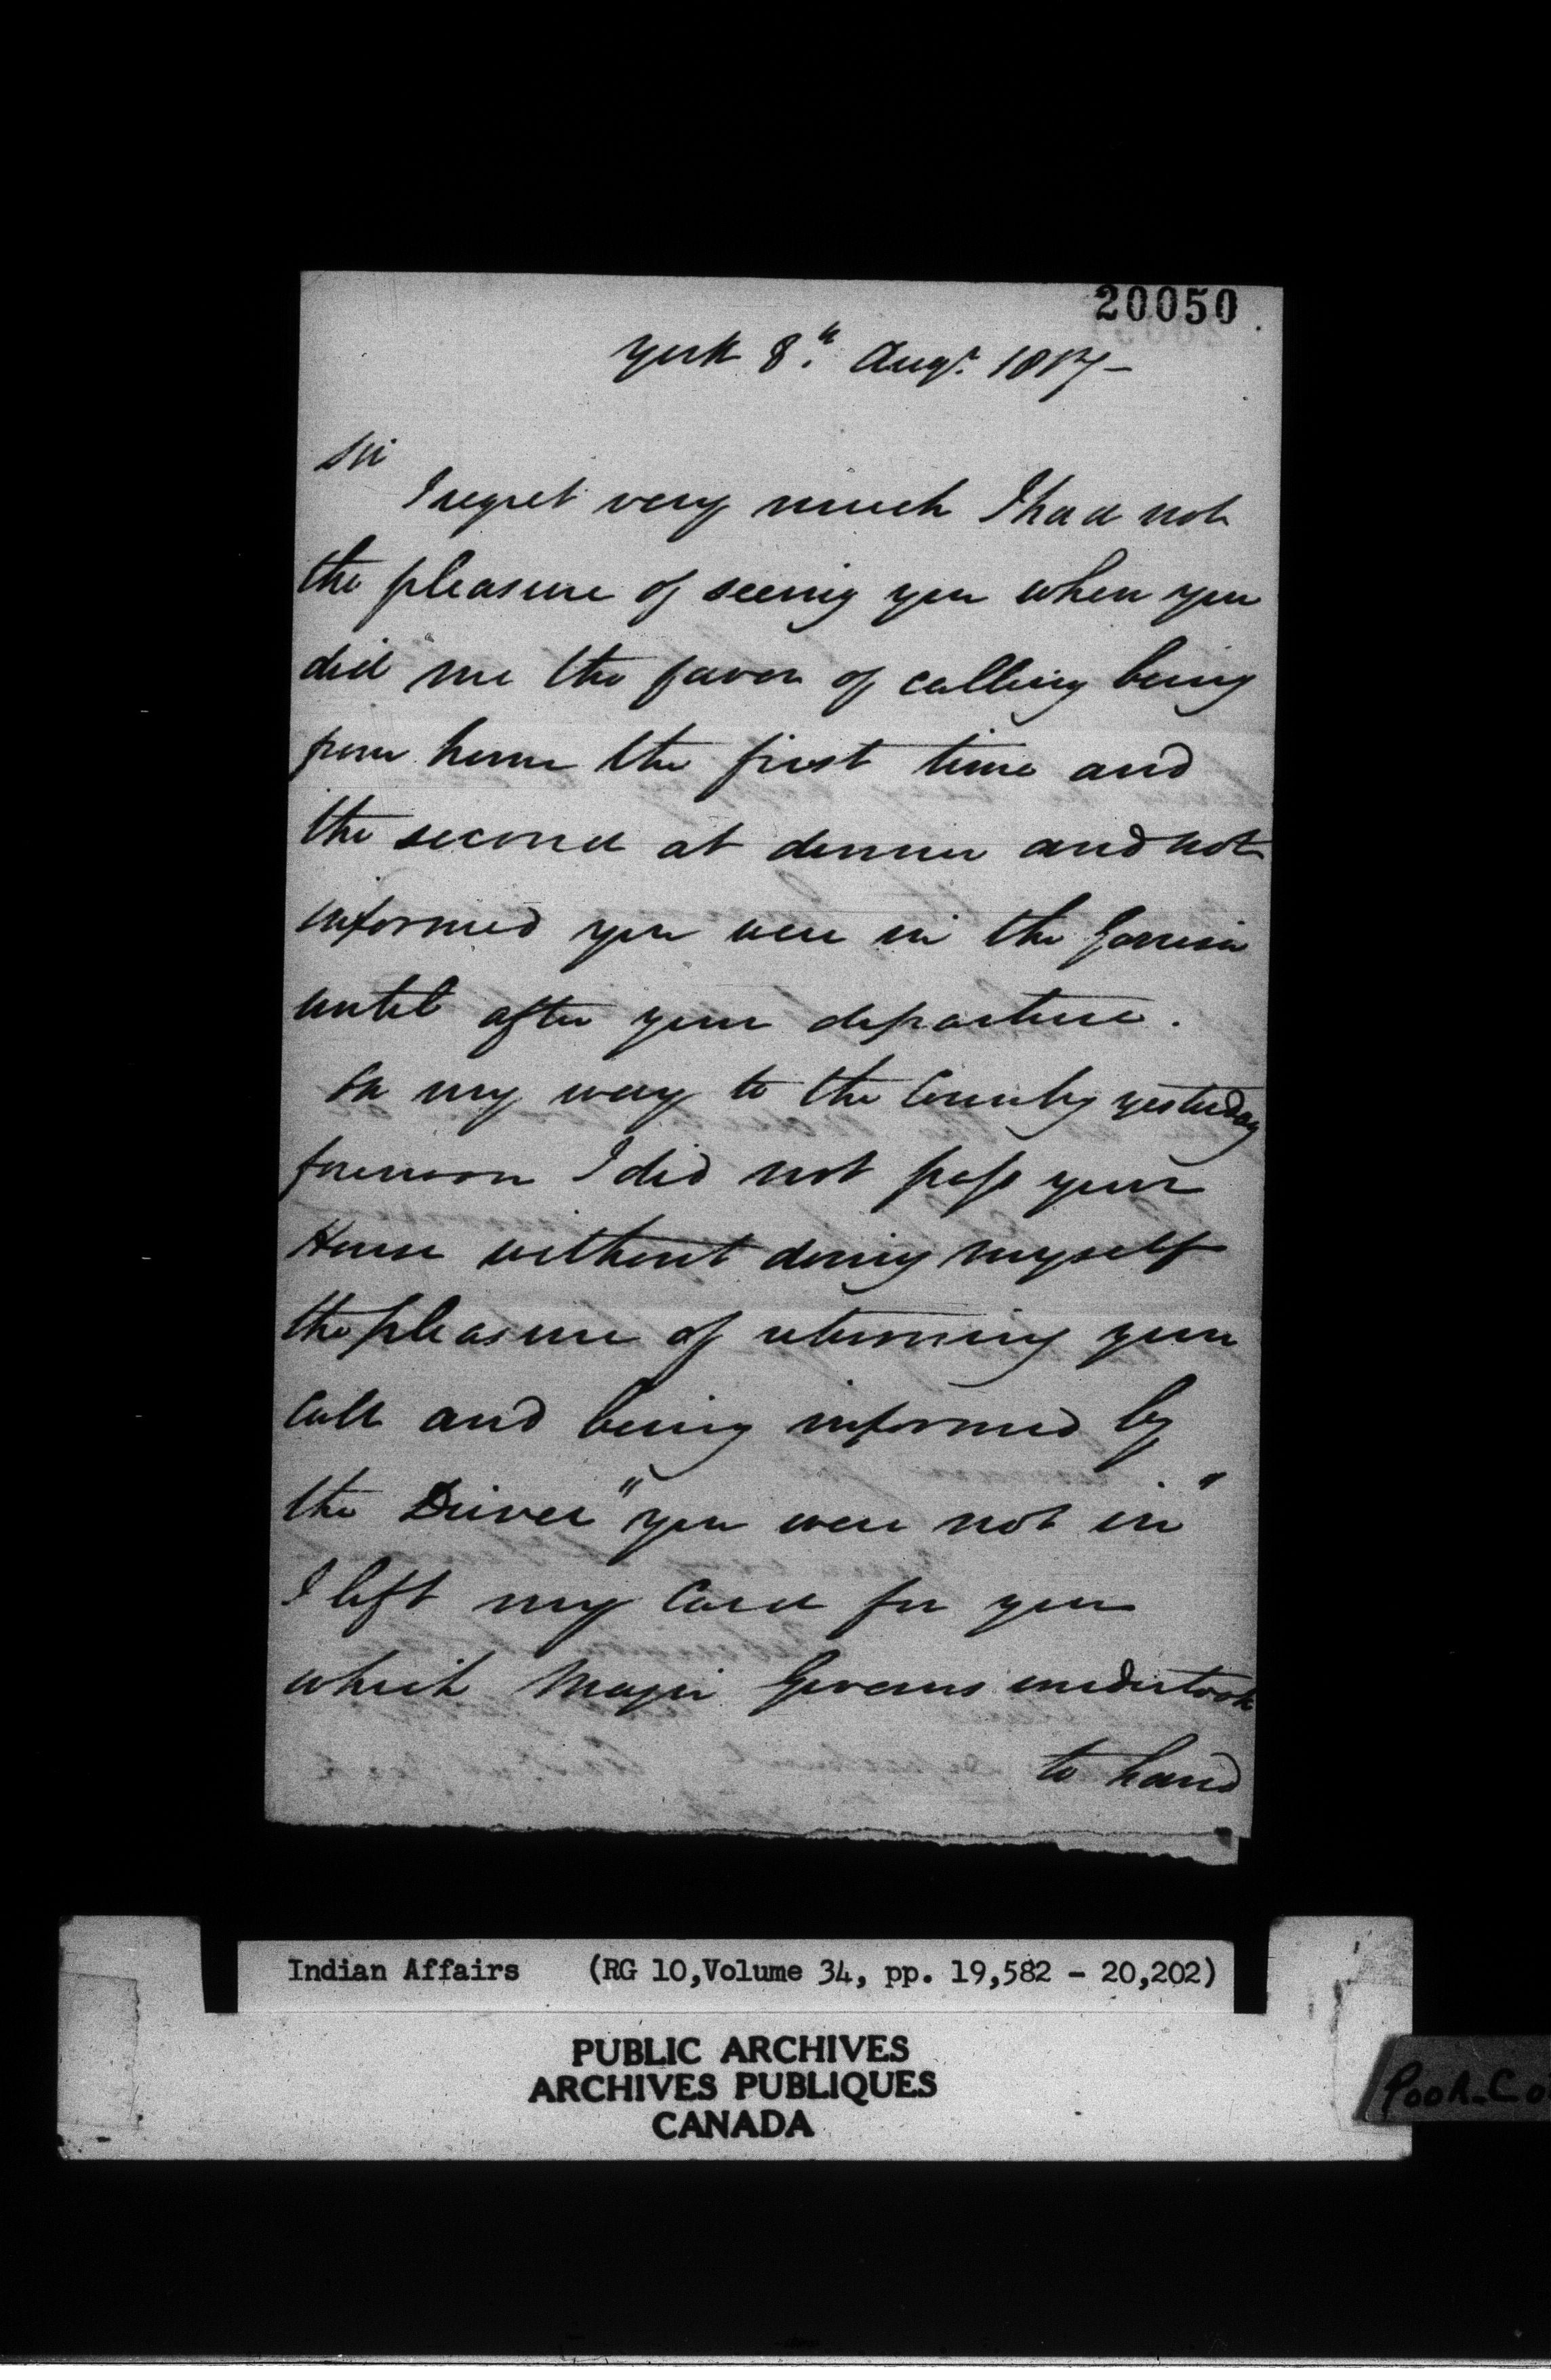 20050
York 8.th Augt. 1817-
Sir
I regret very much I had not
the pleasure of seeing you when you
did me the favor of calling being
from home the first time and
the second at dinner and not
informed you were in the Garrison
until after your departure.
On my way to the Country yesterday
forenoon I did not pass your
House without doing myself
the pleasure of returning your
Call and being informed by
the Driver "you were not in"
I left my Card for you
which Major Givens undertook
to hand
Indian Affairs (RG 10, Volume 34, pp. 19,582 - 20,202)
PUBLIC ARCHIVES
ARCHIVES PUBLIQUES
CANADA